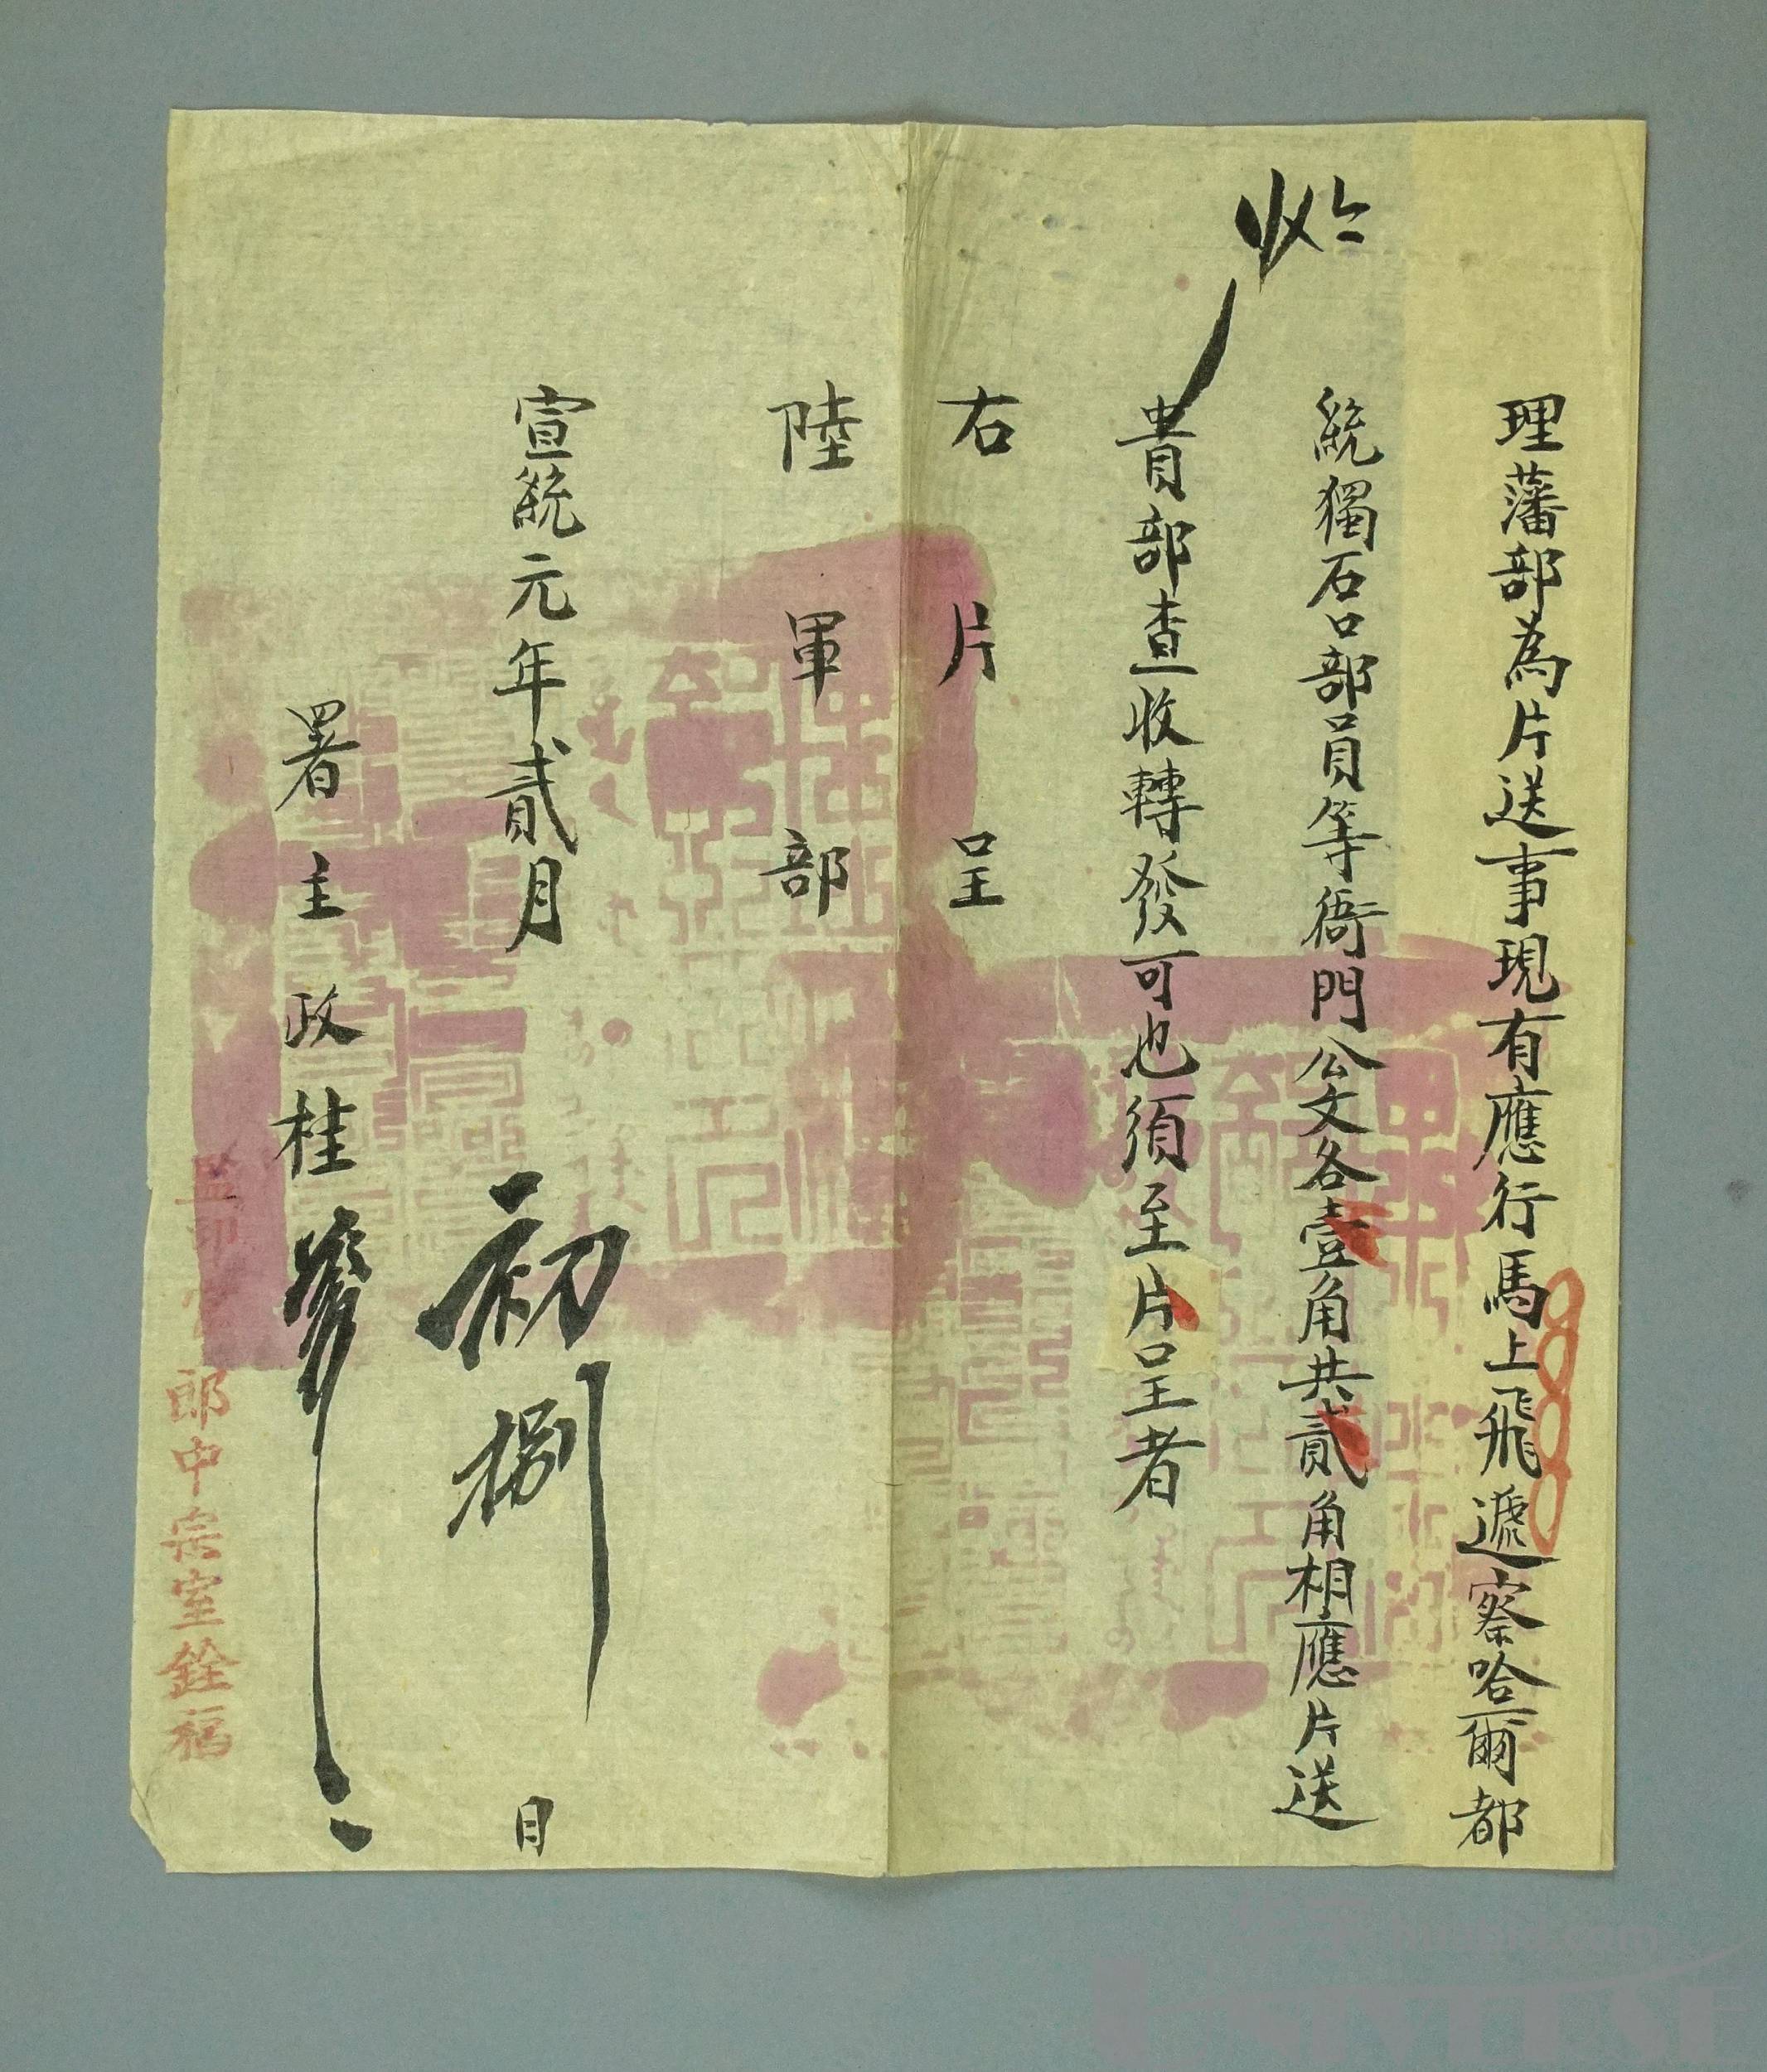 理藩部為片送事現有應行馬上飛遞察哈爾都
統獨石口部員等衙門公文各壹角共貳角相應片送
貴部查收轉發可也須至片呈者
右片呈
陸軍部
宣統元年貳月初捌日
署主政桂
郎中宗室銓福